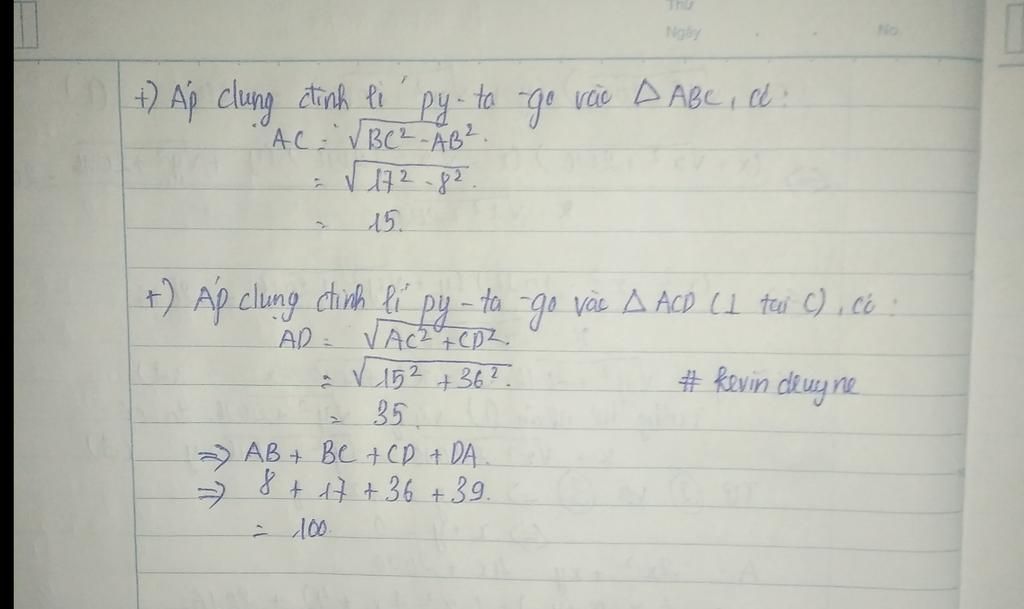 Thứ
Ngày . . No
+) Áp dụng định lí py-ta-go vào △ ABC, có:
AC = √BC² - AB².
= √17² - 8².
= 15.
+) Áp dụng định lí py-ta-go vào △ ACD (⊥ tại C), có:
AD = √AC² + CD².
= √15² + 36².
# kevin deuyne
= 35.
=> AB + BC + CD + DA.
=> 8 + 17 + 36 + 39.
= 100.